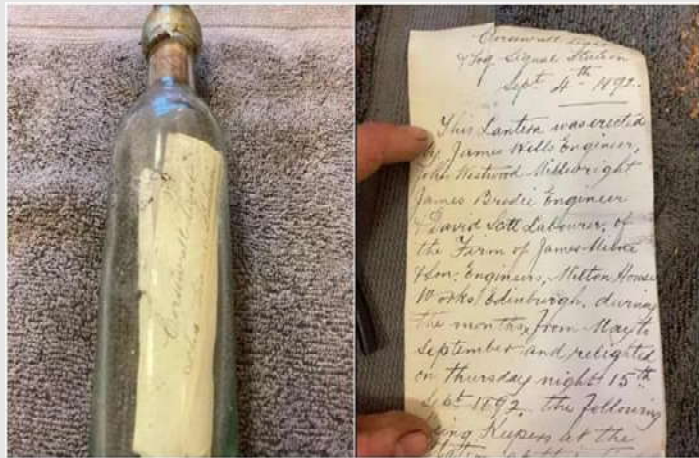 Corsewall Light
Corsewall Light
& Fog Signal Station
Sept 4th 1892.
This Lantern was erected
by James Wells Engineer,
John Westwood Millwright
James Brodie Engineer
David Scott Labourer, of
the Firm of James Milne
& Son. Engineers, Milton House
Works Edinburgh. during
the months from May to
September and relighted
on Thursday night 15th
Sept 1892. The following
being Keepers at the